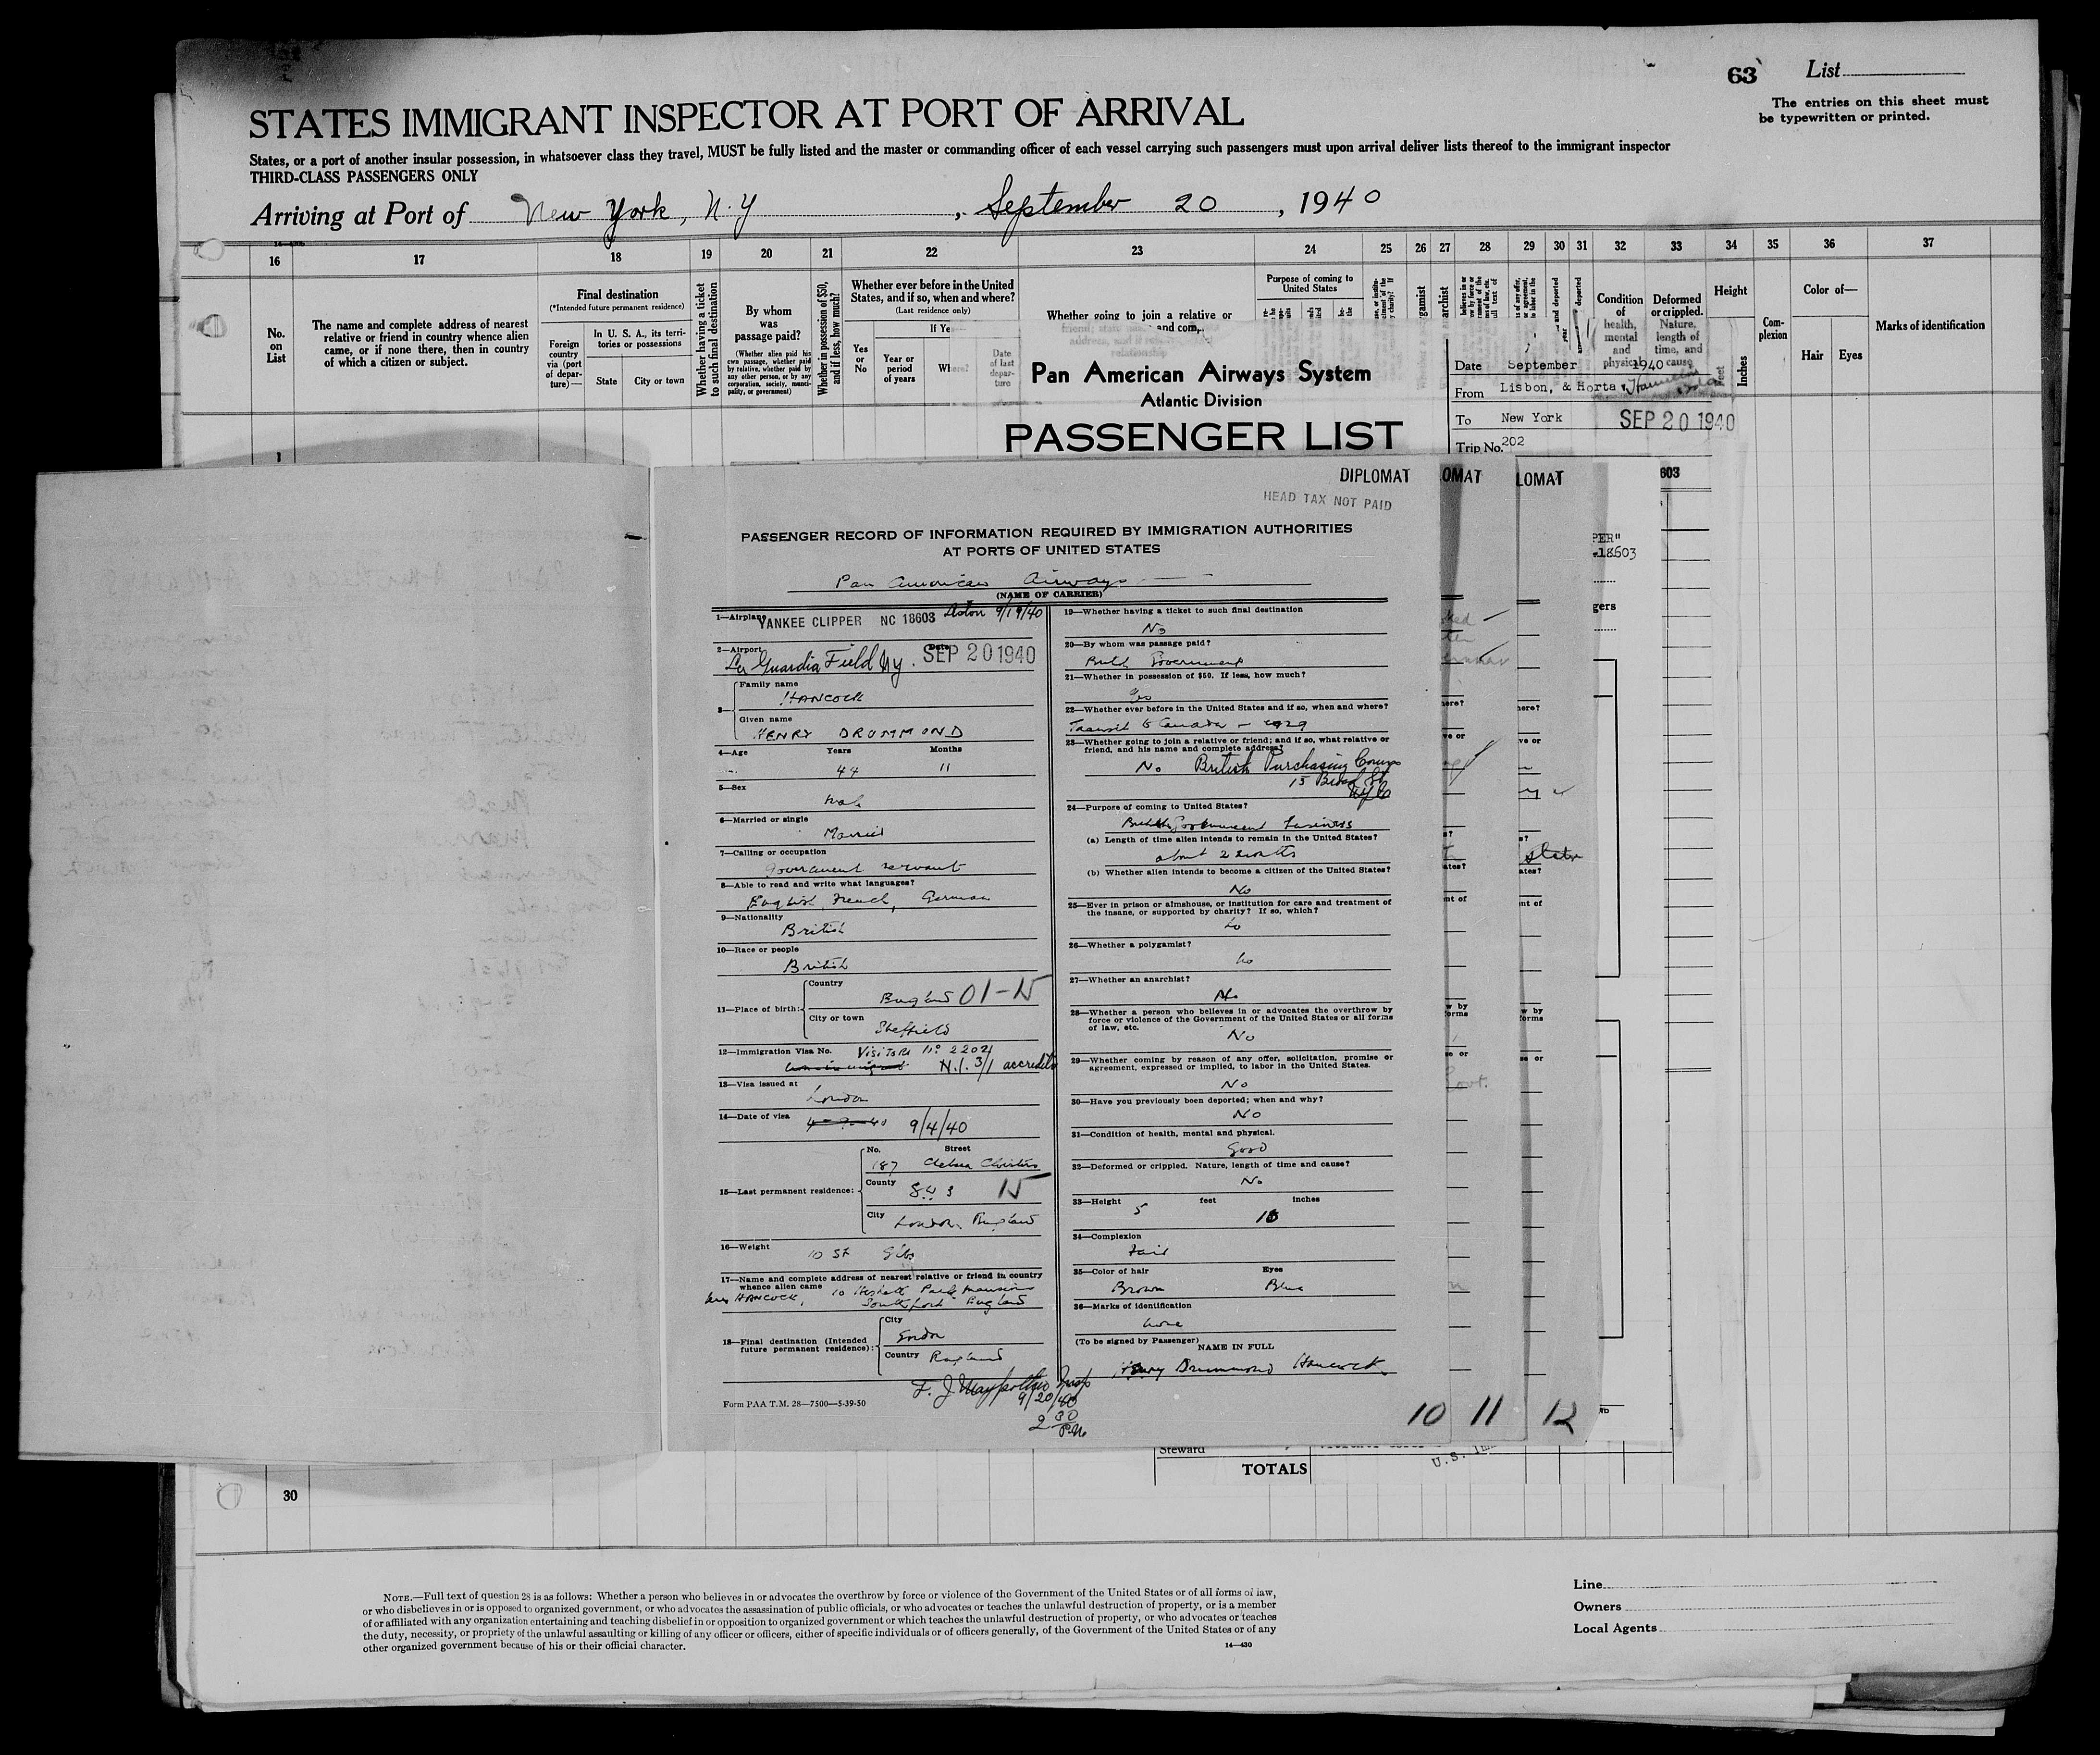 63 List
The entries on this sheet must
be typewritten or printed.
STATES IMMIGRANT INSPECTOR AT PORT OF ARRIVAL
States, or a port of another insular possession, in whatsoever class they travel, MUST be fully listed and the master or commanding officer of each vessel carrying such passengers must upon arrival deliver lists thereof to the immigrant inspector
THIRD-CLASS PASSENGERS ONLY
Arriving at Port of New York, N.Y, September 20, 1940
16 17 18 19 20 21 22 23 24 25 26 27 28 29 30 31 32 33 34 35 36 37
No.
on
List
The name and complete address of nearest
relative or friend in country whence alien
came, or if none there, then in country
of which a citizen or subject.
Final destination
(*Intended future permanent residence)
Foreign
country
via (port
of depar-
ture)—
In U. S. A., its terri-
tories or possessions
State City or town
Whether having a ticket
to such final destination
By whom
was
passage paid?
(Whether alien paid his
own passage, whether paid
by relative, whether paid by
any other person, or by any
corporation, society, munici-
pality, or government)
Whether in possession of $50,
and if less, how much?
Whether ever before in the United
States, and if so, when and where?
(Last residence only)
If Yes
Yes
or
No
Year or
period
of years
Where?
Date
of last
depar-
ture
Whether going to join a relative or
Purpose of coming to
United States
Condition
of
health,
mental
and
physical
Deformed
or crippled.
Nature,
length of
time, and
cause
Height
Feet
Inches
Com-
plexion
Color of—
Hair Eyes
Marks of identification
Pan American Airways System
Atlantic Division
PASSENGER LIST
Date September 1940
From Lisbon, & Horta
To New York SEP 20 1940
Trip No. 202
DIPLOMAT
OMAT
LOMAT
603
HEAD TAX NOT PAID
PER"
18603
gers
PASSENGER RECORD OF INFORMATION REQUIRED BY IMMIGRATION AUTHORITIES
AT PORTS OF UNITED STATES
Pan American Airways
(NAME OF CARRIER)
1—Airplane YANKEE CLIPPER NC 18603 9/19/40
2—Airport La Guardia Field Ny. Date SEP 20 1940
3— Family name HANCOCK
Given name HENRY DRUMMOND
4—Age Years 44 Months 11
5—Sex Male
6—Married or single Married
7—Calling or occupation Government servant
8—Able to read and write what languages? English, French, German
9—Nationality British
10—Race or people British
11—Place of birth: Country England 01-15
City or town Sheffield
12—Immigration Visa No. Visitors No 2202
N.I. 3/1 accredited
13—Visa issued at London
14—Date of visa 9/4/40
15—Last permanent residence: No. 187 Street Chelsea Cloisters
County S.W 3 15
City London. England
16—Weight 10 St 9 lbs
17—Name and complete address of nearest relative or friend in country
whence alien came
Mrs HANCOCK, 10 Hesketh Park Mansions
Southport England
18—Final destination (Intended
future permanent residence): City London
Country England
9/20/40
2 30
P.M.
Form PAA T.M. 28—7500—5-39-50
19—Whether having a ticket to such final destination
No
20—By whom was passage paid?
British Government
21—Whether in possession of $50. If less, how much?
Yes
22—Whether ever before in the United States and if so, when and where?
Transit to Canada – 1929
23—Whether going to join a relative or friend; and if so, what relative or
friend, and his name and complete address?
No British Purchasing Comm
15 Broad St
NYC
24—Purpose of coming to United States?
British Government business
(a) Length of time alien intends to remain in the United States?
about 2 months
(b) Whether alien intends to become a citizen of the United States?
No
25—Ever in prison or almshouse, or institution for care and treatment of
the insane, or supported by charity? If so, which?
No
26—Whether a polygamist?
No
27—Whether an anarchist?
No
28—Whether a person who believes in or advocates the overthrow by
force or violence of the Government of the United States or all forms
of law, etc.
No
29—Whether coming by reason of any offer, solicitation, promise or
agreement, expressed or implied, to labor in the United States.
No
30—Have you previously been deported; when and why?
No
31—Condition of health, mental and physical.
Good
32—Deformed or crippled. Nature, length of time and cause?
No
33—Height 5 feet 10 inches
34—Complexion
Fair
35—Color of hair Brown Eyes Blue
36—Marks of identification
None
(To be signed by Passenger)
NAME IN FULL
Henry Drummond Hancock
10 11 12
Steward
TOTALS
30
NOTE.—Full text of question 28 is as follows: Whether a person who believes in or advocates the overthrow by force or violence of the Government of the United States or of all forms of law,
or who disbelieves in or is opposed to organized government, or who advocates the assassination of public officials, or who advocates or teaches the unlawful destruction of property, or is a member
of or affiliated with any organization entertaining and teaching disbelief in or opposition to organized government or which teaches the unlawful destruction of property, or who advocates or teaches
the duty, necessity, or propriety of the unlawful assaulting or killing of any officer or officers, either of specific individuals or of officers generally, of the Government of the United States or of any
other organized government because of his or their official character.
14—430
Line
Owners
Local Agents